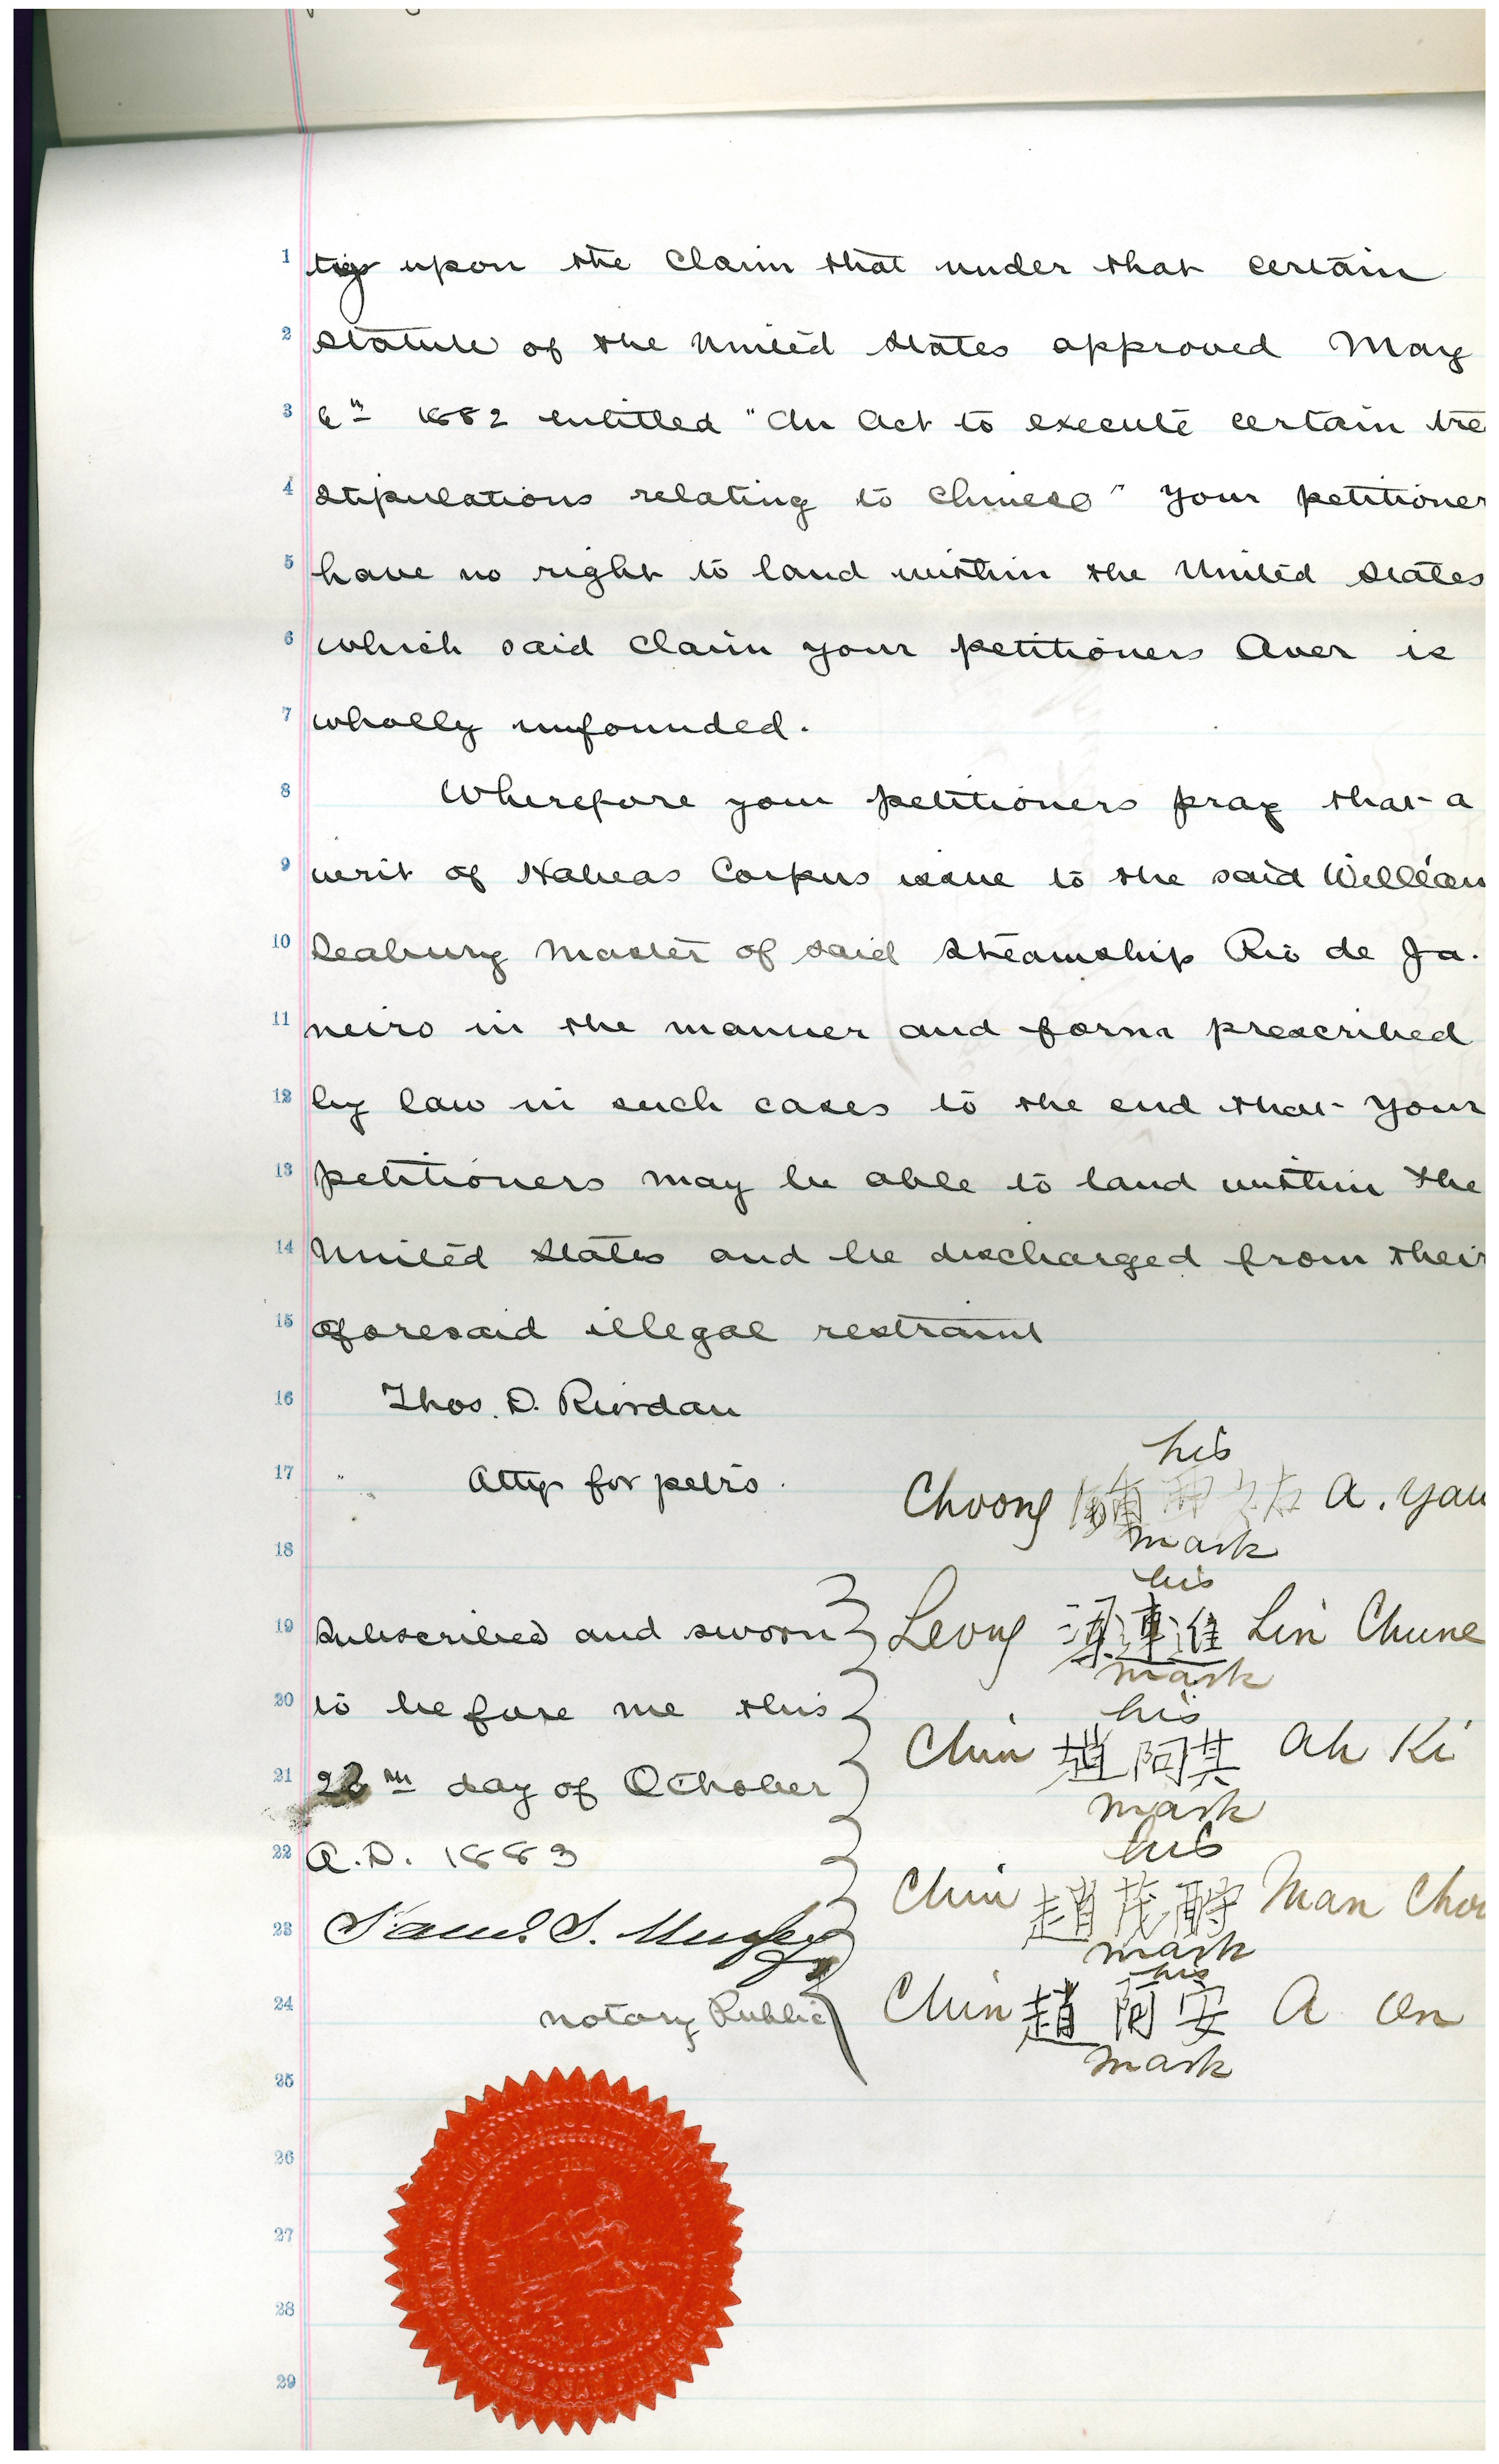 upon the Claim that under that certain
statute of the United States approved May
6th 1882 entitled "An Act to execute certain tre
stipulations relating to Chinese" your petitioner
have no right to land within the United States
which said claim your petitioners aver is
wholly unfounded.
Wherefore your petitioners pray that a
writ of Habeas Corpus issue to the said William
Seabury Master of said steamship Rio de Ja-
neiro in the manner and form prescribed
by law in such cases to the end that your
petitioners may be able to land within the
United States and be discharged from their
aforesaid illegal restraint
Thos. D. Riordan
Atty for petrs.
his
Choong A. Yau
mark
his
Subscribed and sworn Leong 梁連進 Lin Chune
mark
to before me this his
Chin 趙阿其 Ah Ki
day of October
mark
A.D. 1883 his
Chin 趙茂 Man Cho
Saml. S. Murfey
mark
his
Notary Public Chin 趙阿安 A On
mark